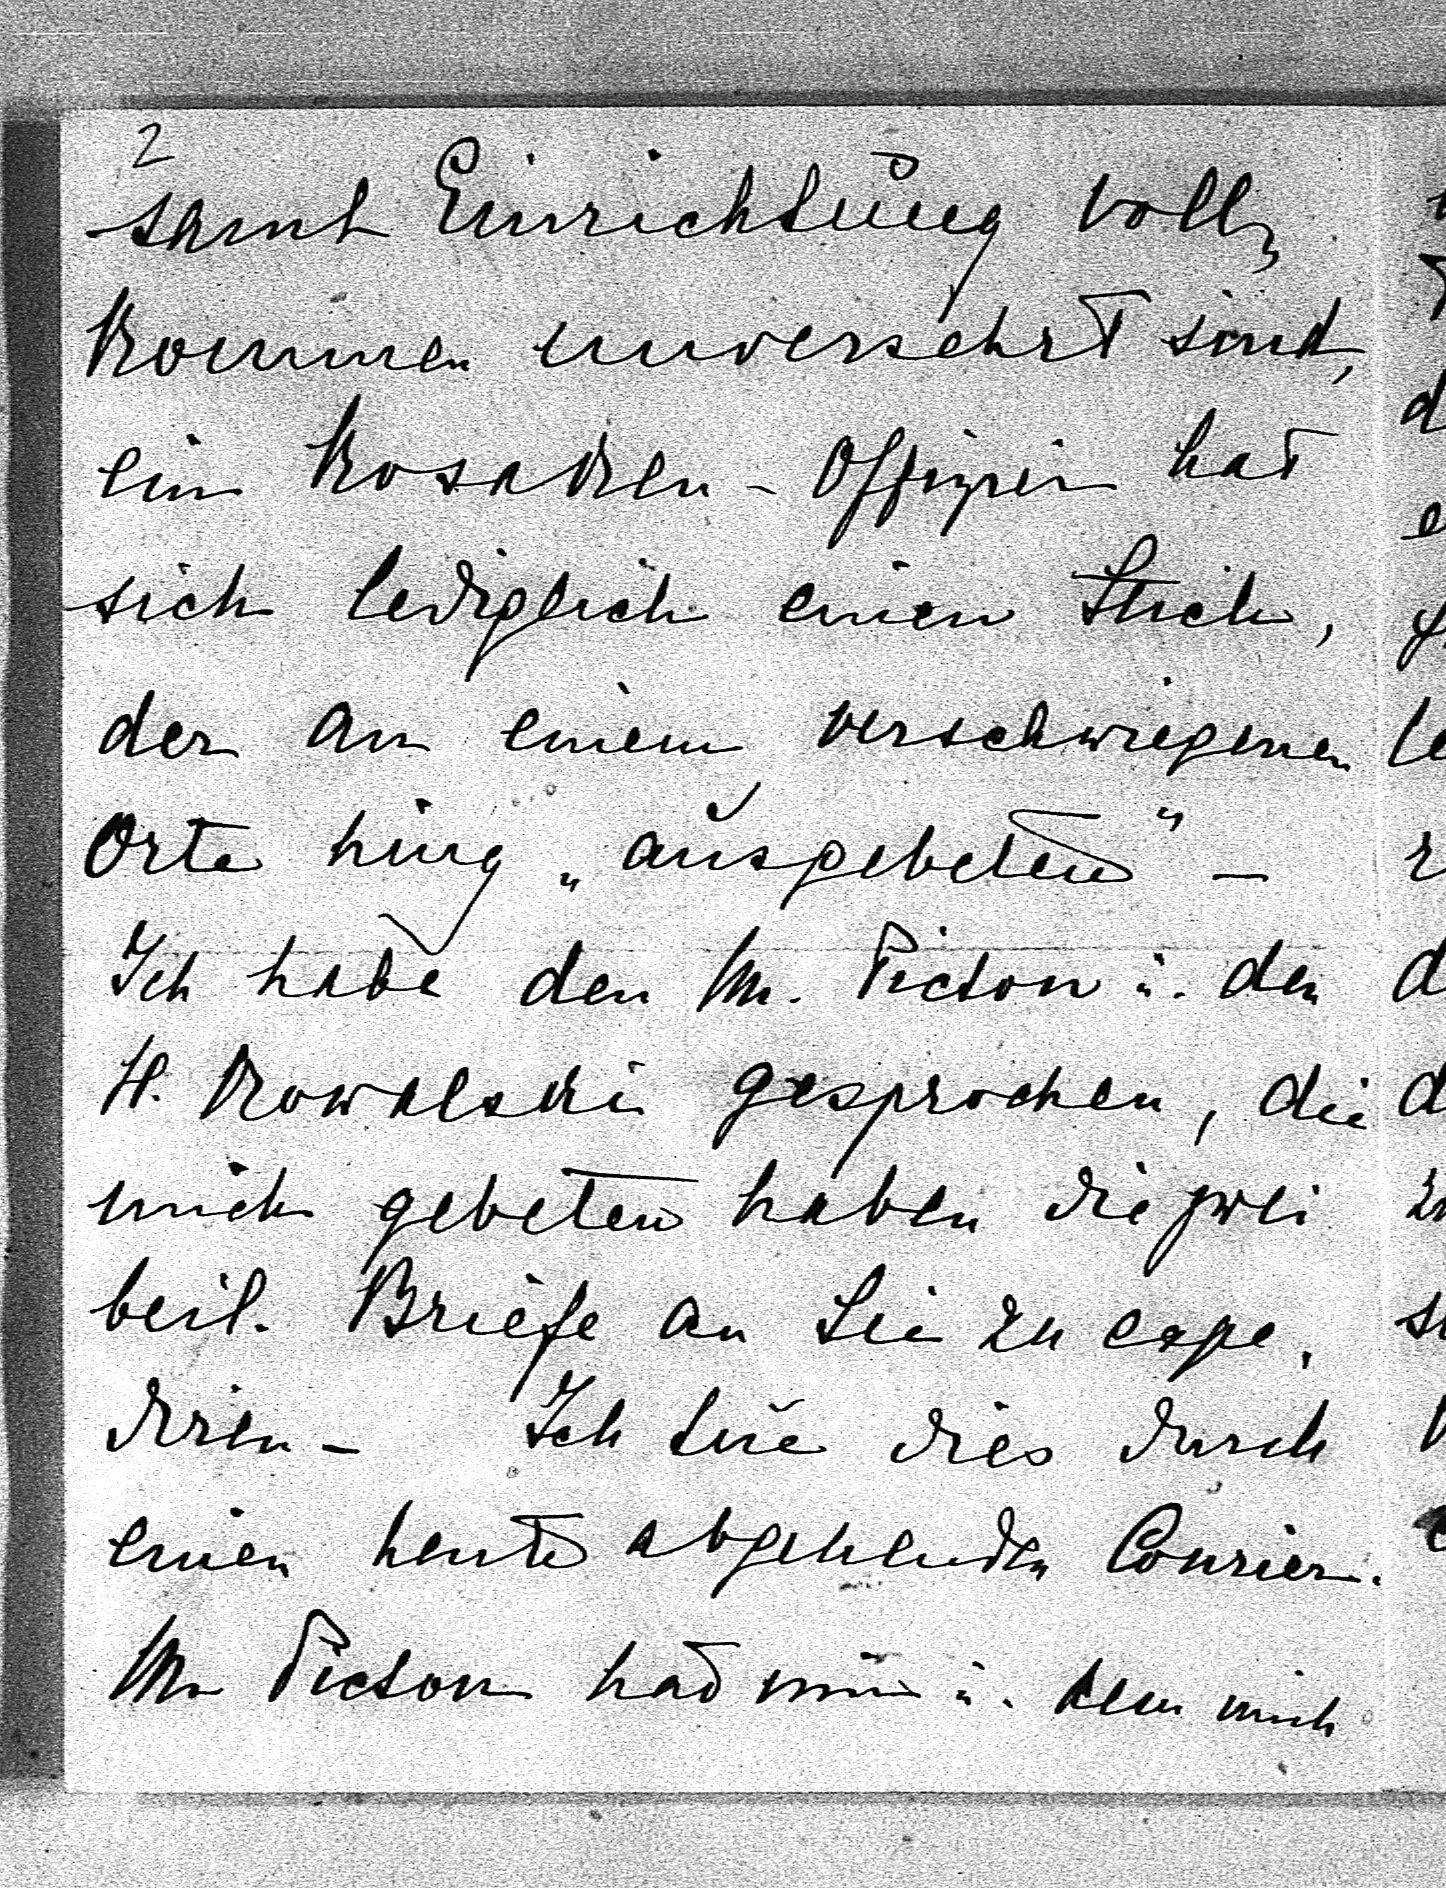 2
samt Einrichtung voll-
kommen unversehrt sind,
ein Kosaken-Offizier hat
sich lediglich einen Stich,
der an einem verschwiegenen
Orte hing „ausgebeten" –
Ich habe den Mr. Picton u. den
H. Kowalski gesprochen, die
mich gebeten haben die zwei
beil. Briefe an Sie zu expe-
diren – Ich tue dies durch
einen heute abgehenden Courier.
Mr Picton hat mir u. dem mich